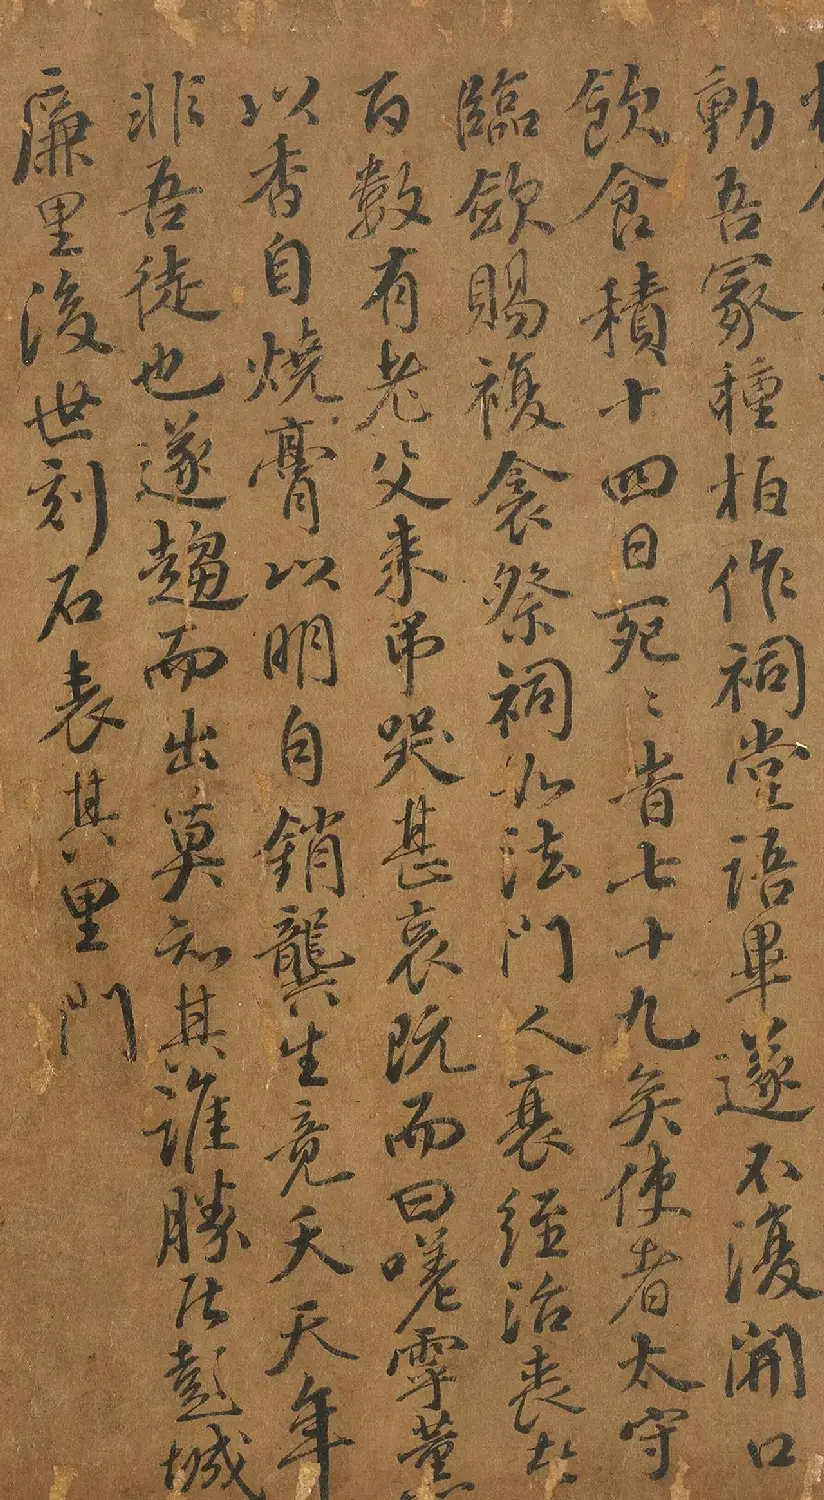 動吾冢種栢作祠堂語畢遂不復開口
飲食積十四日死〻旹七十九矣使者太守
臨歛賜複衾祭祠如法門人衰絰治喪者
百數有老父来吊哭甚哀既而曰嗟虖薰
以香自燒膏以明自銷龔生竟夭天年
非吾徒也遂趨而出莫知其誰勝居彭城
廉里後世刻石表其里門